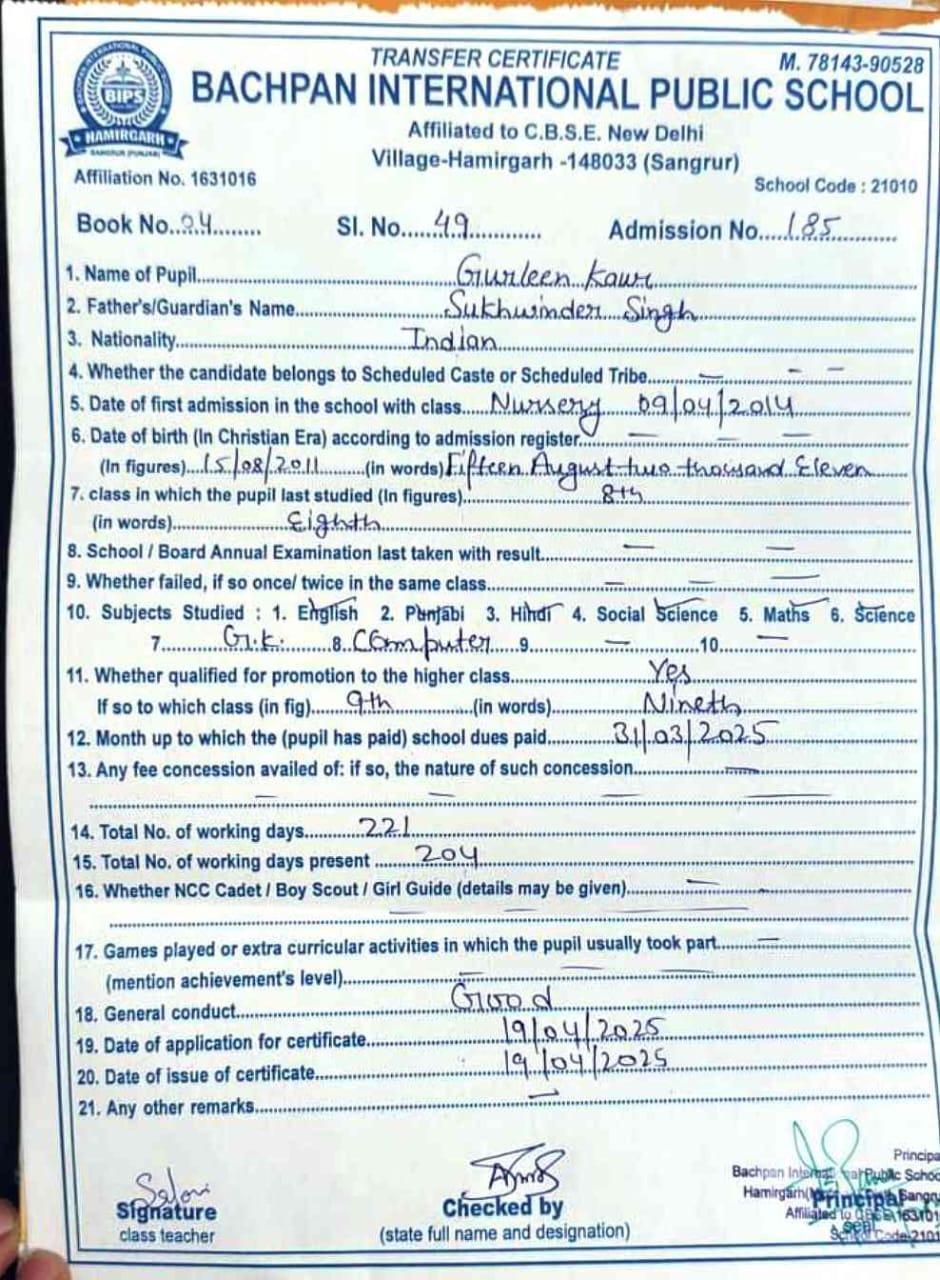 TRANSFER CERTIFICATE M. 78143-90528
BIPS
HAMIRGARH
BACHPAN INTERNATIONAL PUBLIC SCHOOL
Affiliated to C.B.S.E. New Delhi
Village-Hamirgarh -148033 (Sangrur)
Affiliation No. 1631016 School Code : 21010
Book No. 04 Sl. No. 49 Admission No. 185
1. Name of Pupil Gurleen Kaur
2. Father's/Guardian's Name Sukhwinder Singh
3. Nationality Indian
4. Whether the candidate belongs to Scheduled Caste or Scheduled Tribe — — —
5. Date of first admission in the school with class Nursery 09/04/2014
6. Date of birth (In Christian Era) according to admission register — — —
(In figures) 15/08/2011 (in words) Fifteen August two thousand Eleven
7. class in which the pupil last studied (In figures) 8th
(in words) Eighth
8. School / Board Annual Examination last taken with result — —
9. Whether failed, if so once/ twice in the same class — — —
10. Subjects Studied : 1. English 2. Punjabi 3. Hindi 4. Social Science 5. Maths 6. Science
7. G.K. 8. Computer 9. — 10. —
11. Whether qualified for promotion to the higher class Yes
If so to which class (in fig) 9th (in words) Nineth
12. Month up to which the (pupil has paid) school dues paid 31/03/2025
13. Any fee concession availed of: if so, the nature of such concession —
— — — —
14. Total No. of working days 221
15. Total No. of working days present 204
16. Whether NCC Cadet / Boy Scout / Girl Guide (details may be given) — —
— — —
17. Games played or extra curricular activities in which the pupil usually took part —
(mention achievement's level) — — —
18. General conduct Good
19. Date of application for certificate 19/04/2025
20. Date of issue of certificate 19/04/2025
21. Any other remarks —
Saloni
Signature
class teacher
Checked by
(state full name and designation)
Principa
Bachpan Public Schoo
Hamirgarh Principal Sangru
Affiliated to
School Code 2101